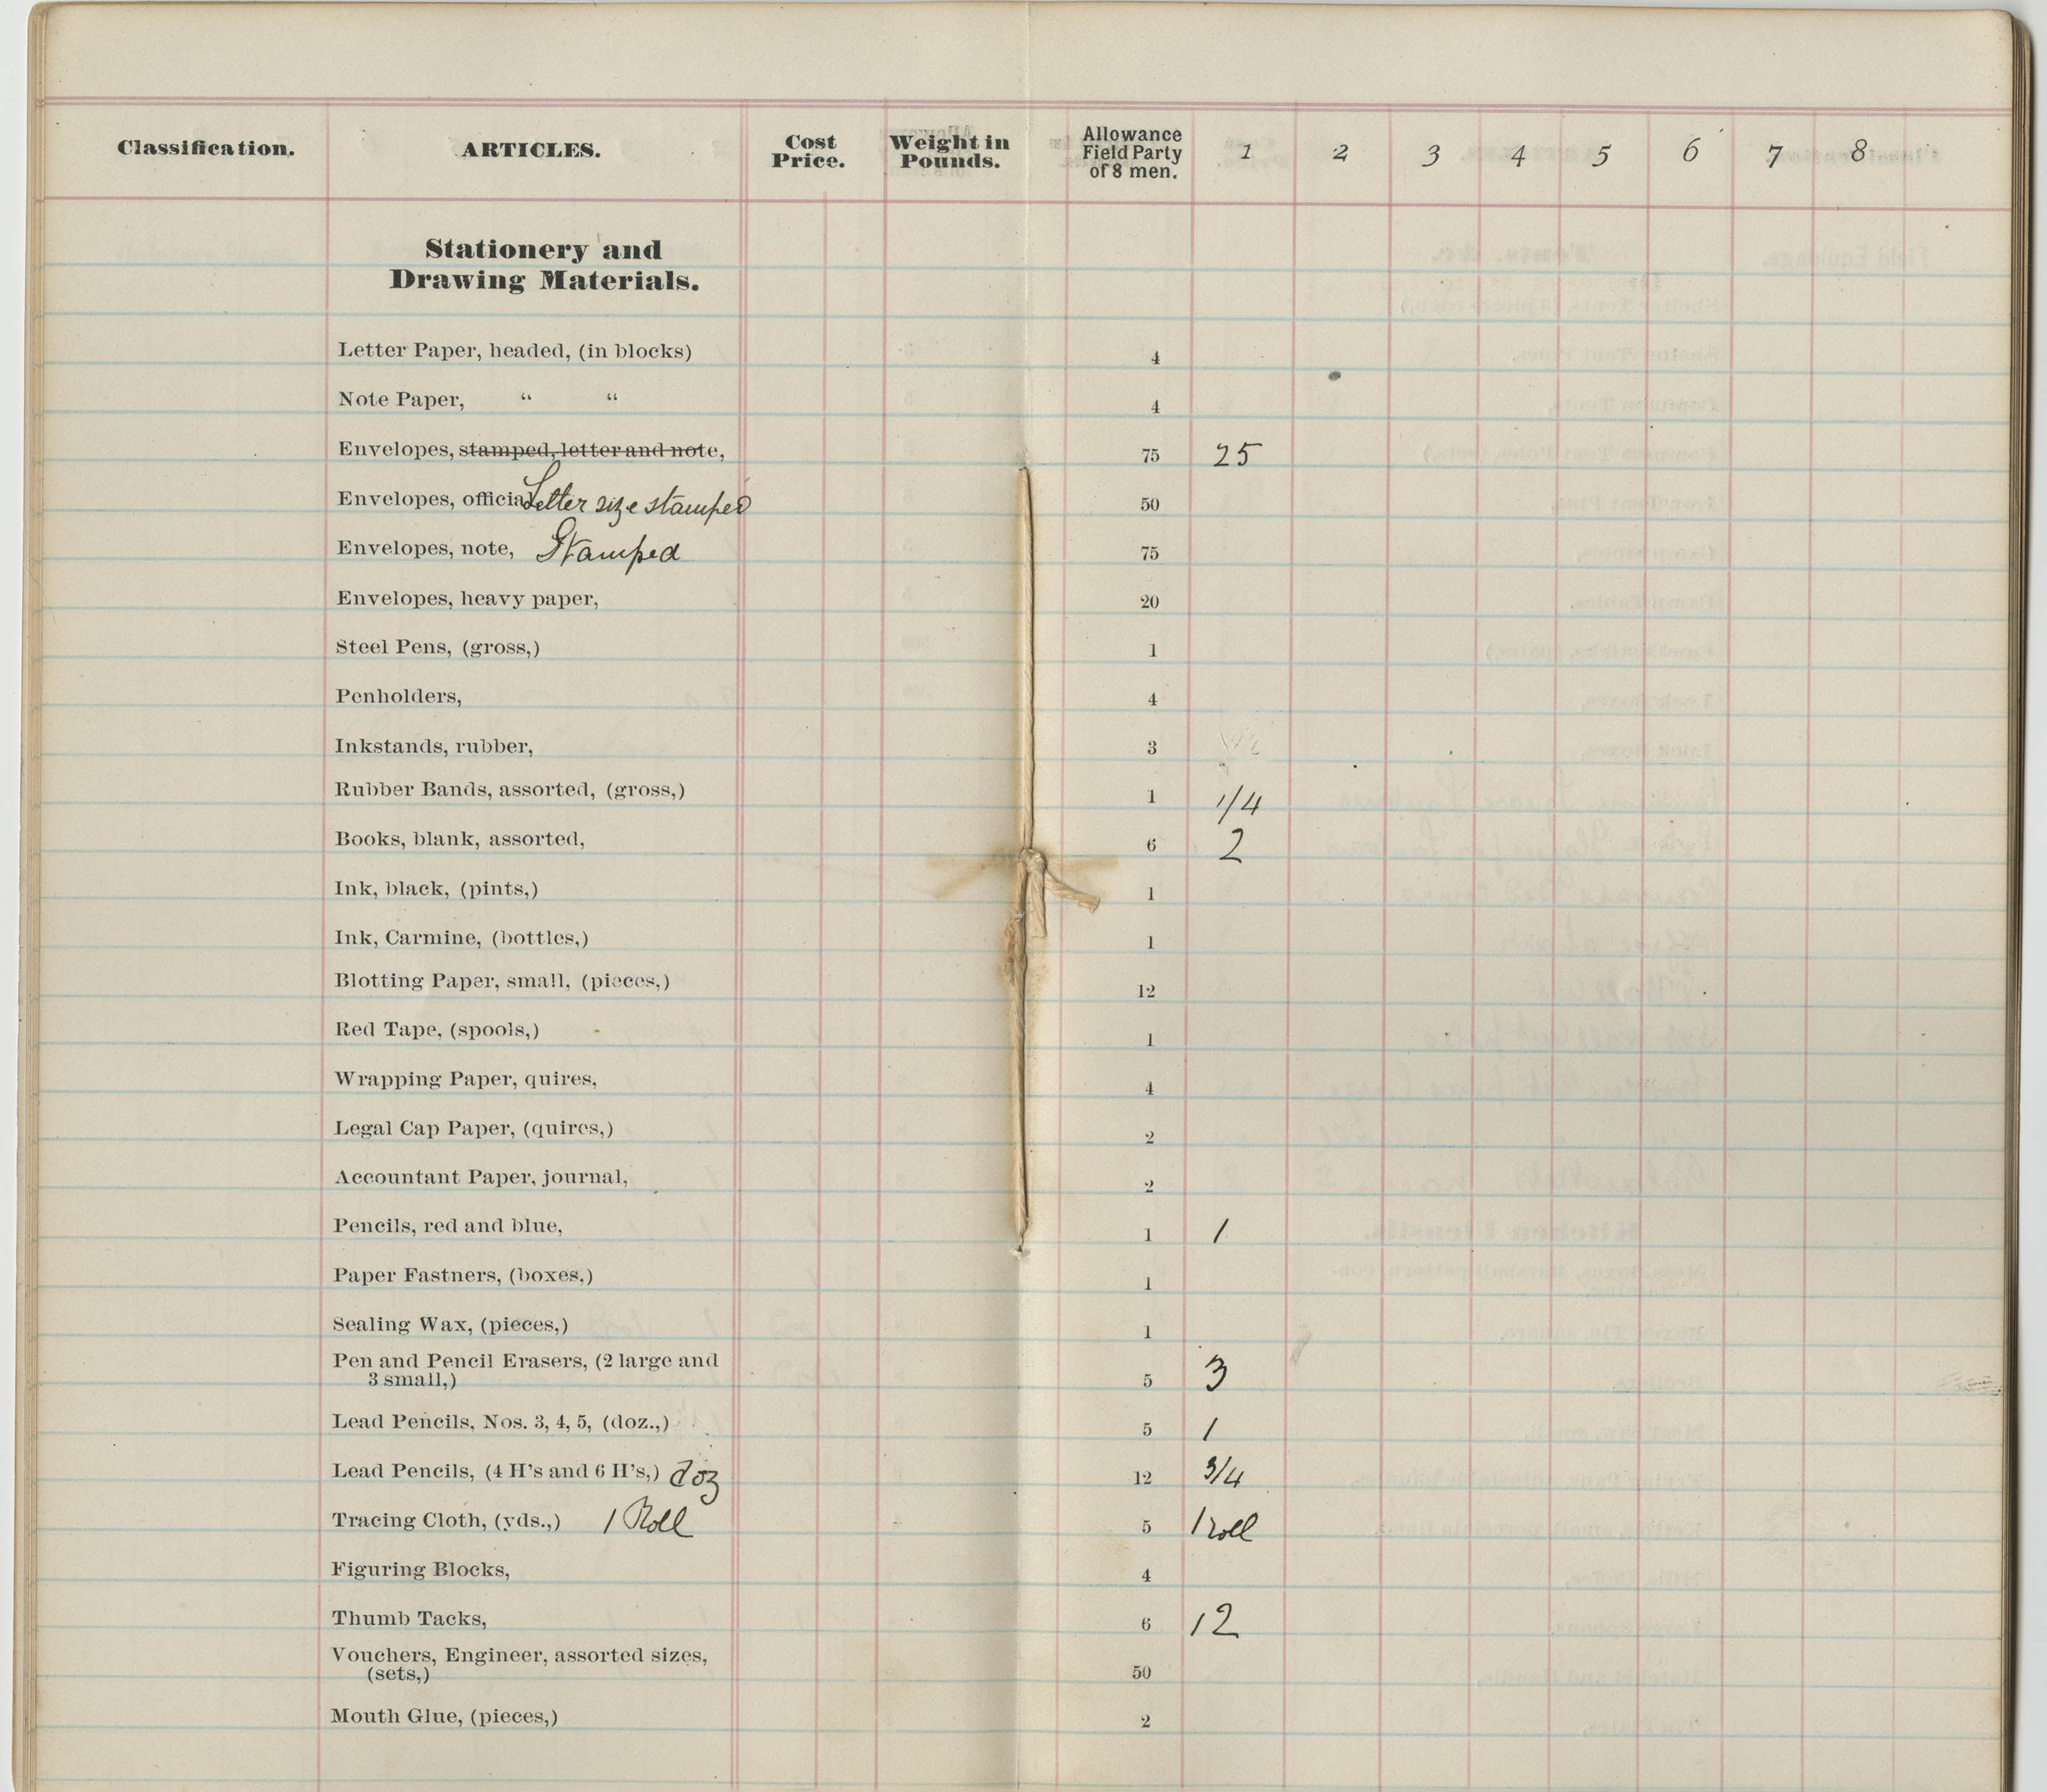 Classification. ARTICLES. Cost Price. Weight in Pounds. Allowance Field Party of 8 men. 1 2 3 4 5 6 7 8
Stationery and
Drawing Materials.
Letter Paper, headed, (in blocks) 4
Note Paper, “ “ 4
Envelopes, stamped, letter and note, 75 25
Envelopes, official Letter size stamped 50
Envelopes, note, Stamped 75
Envelopes, heavy paper, 20
Steel Pens, (gross,) 1
Penholders, 4
Inkstands, rubber, 3
Rubber Bands, assorted, (gross,) 1 1/4
Books, blank, assorted, 6 2
Ink, black, (pints,) 1
Ink, Carmine, (bottles,) 1
Blotting Paper, small, (pieces,) 12
Red Tape, (spools,) 1
Wrapping Paper, quires, 4
Legal Cap Paper, (quires,) 2
Accountant Paper, journal, 2
Pencils, red and blue, 1 1
Paper Fastners, (boxes,) 1
Sealing Wax, (pieces,) 1
Pen and Pencil Erasers, (2 large and
3 small,) 5 3
Lead Pencils, Nos. 3, 4, 5, (doz.,) 5 1
Lead Pencils, (4 H's and 6 H's,) doz 12 3/4
Tracing Cloth, (yds.,) 1 Roll 5 1 roll
Figuring Blocks, 4
Thumb Tacks, 6 12
Vouchers, Engineer, assorted sizes,
(sets,) 50
Mouth Glue, (pieces,) 2